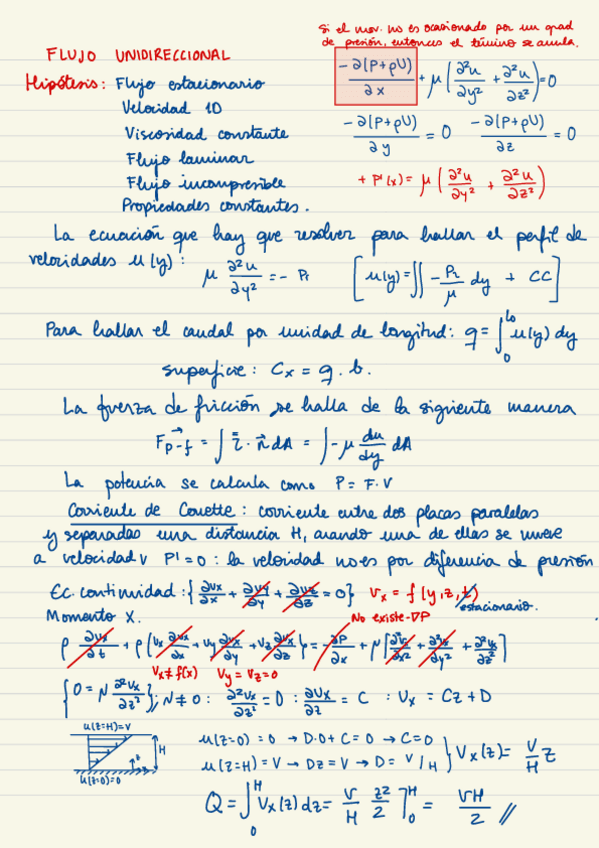 Si el mov. no es ocasionado por un grad
de presión, entonces el término se anula.
FLUJO UNIDIRECCIONAL
Hipótesis: Flujo estacionario
-∂(P+ρU)/∂x + μ(∂²u/∂y² + ∂²u/∂z²)=0
Velocidad 1D
Viscosidad constante
-∂(P+ρU)/∂y = 0 -∂(P+ρU)/∂z = 0
Flujo laminar
Flujo incompresible
+ P'(x) = μ(∂²u/∂y² + ∂²u/∂z²)
Propiedades constantes.
La ecuación que hay que resolver para hallar el perfil de
velocidades u(y): μ ∂²u/∂y² = - Pl [u(y)=∫∫ -Pl/μ dy + CC]
Para hallar el caudal por unidad de longitud: q = ∫₀ᵇ u(y) dy
superficie: Cx = q . b.
La fuerza de fricción se halla de la siguiente manera
Fp-f = ∫ τ̿ · n⃗ dA = ∫ -μ du/dy dA
La potencia se calcula como P = F.V
Corriente de Couette: corriente entre dos placas paralelas
y separadas una distancia H, cuando una de ellas se mueve
a velocidad v P' = 0 : la velocidad no es por diferencia de presión
Ec. continuidad: {∂vx/∂x + ∂vy/∂y + ∂vz/∂z = 0} vx = f(y,z,t)
estacionario.
Momento X.
No existe DP
ρ ∂vx/∂t + ρ(vx ∂vx/∂x + vy ∂vx/∂y + vz ∂vx/∂z) = -∂P/∂x + μ[∂²vx/∂x² + ∂²vx/∂y² + ∂²vx/∂z²]
vx ≠ f(x) vy = vz = 0
{0 = N ∂²vx/∂z²}; N ≠ 0 : ∂²vx/∂z² = 0 : ∂vx/∂z = C : vx = Cz + D
u(z=H)=v
H
z
u(z=0)=0
u(z=0) = 0 → D·0 + C = 0 → C = 0
u(z=H) = V → Dz = V → D = V/H } Vx(z) = V/H z
Q = ∫₀ᴴ Vx(z) dz = V/H z²/2 ]₀ᴴ = VH/2 //